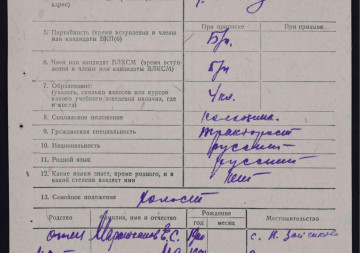 адрес)
При приписке При призыве
5. Партийность (время вступления в члены
или кандидаты ВКП(б)
Б/п
6. Член или кандидат ВЛКСМ (время вступ-
ления в члены или кандидаты ВЛКСМ)
Б/п
7. Образование:
(указать, сколько классов или курсов
какого учебного заведения окончил, где
и когда)
4 кл.
8. Социальное положение
9. Гражданская специальность
тракторист
10. Национальность
русский
11. Родной язык
русский
12. Какие языки знает, кроме родного, и в
какой степени владеет ими
нет
13. Семейное положение
холост
Родство Фамилия, имя и отчество Рождение Местожительство
год месяц
отец Е.С. с.